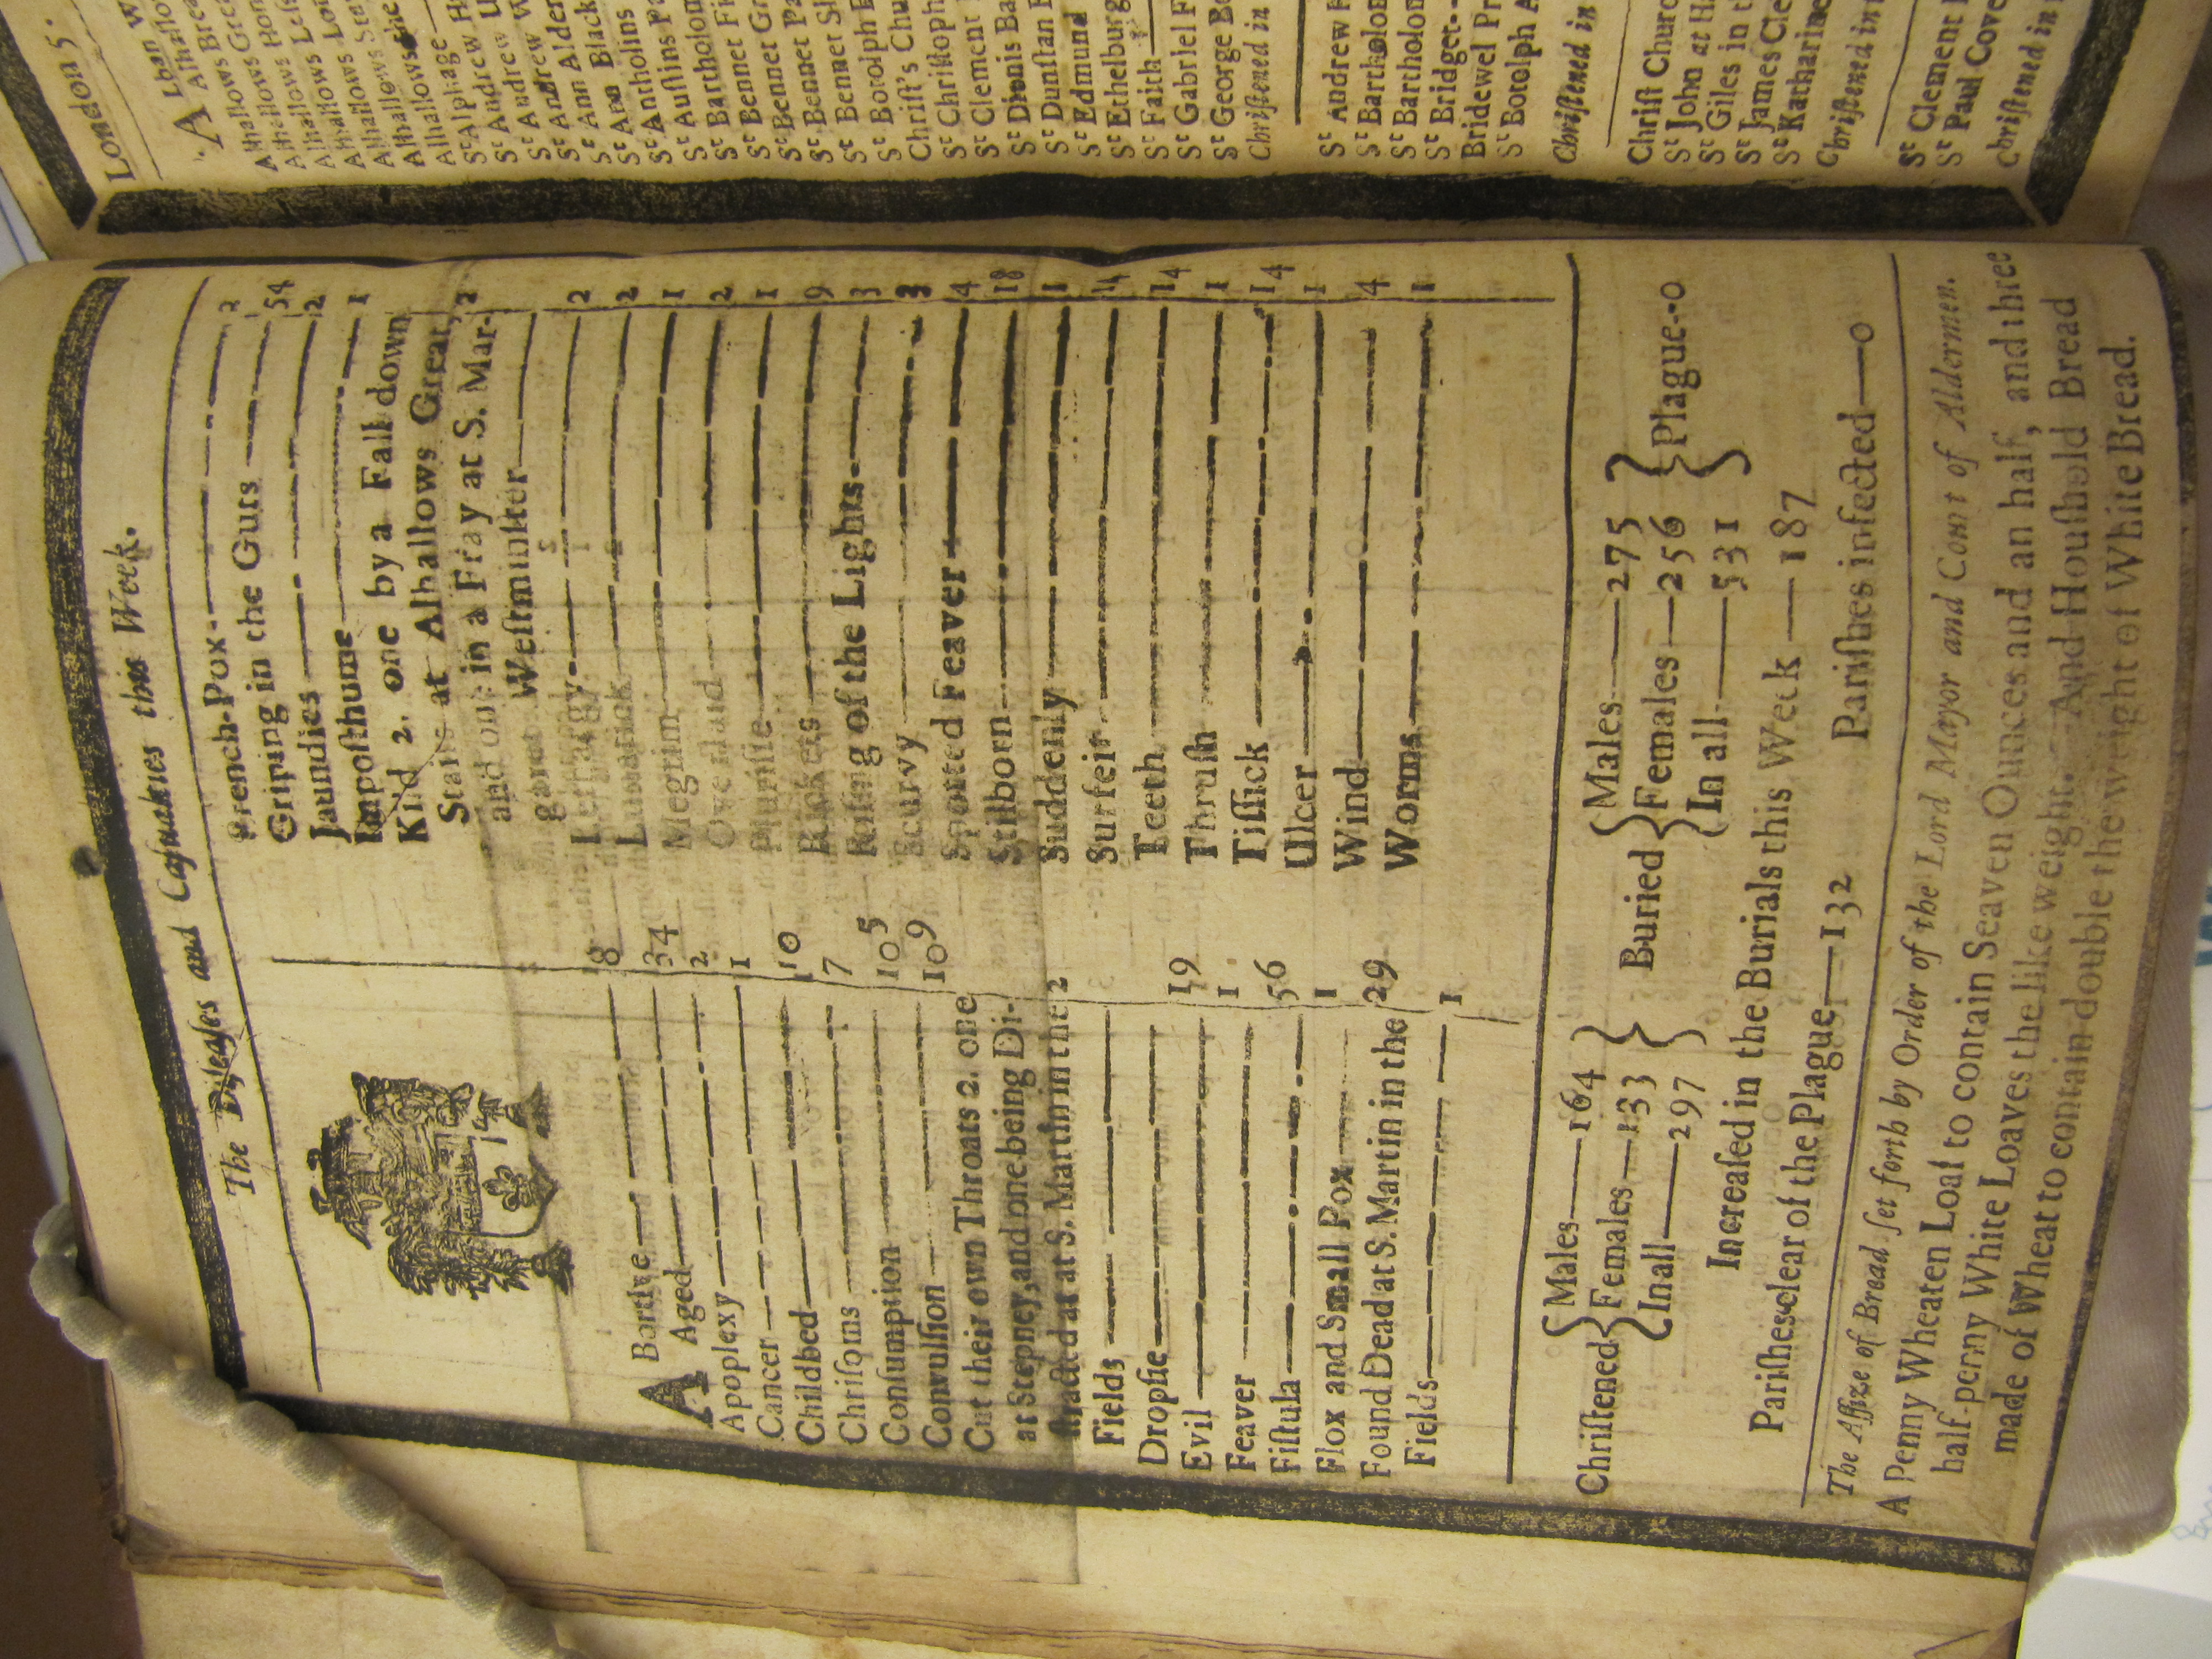 The Diſeaſes and Caſualties this Week.
A Bortive — 8
Aged — 34
Apoplexy — 2
Cancer — 1
Childbed — 10
Chriſoms — 7
Conſumption — 105
Convulſion — 109
Cut their own Throats 2. one
at Stepney, and one being Di-
ſtracted at at S. Martin in the 2
Fields —
Dropſie — 19
Evil — 1
Feaver — 56
Fiſtula — 1
Flox and Small Pox — 29
Found Dead at S. Martin in the
Fields — 1
French-Pox — 2
Griping in the Guts — 54
Jaundies — 2
Impoſthume — 1
Kild 2. one by a Fall down
Stairs at Alhallows Great,
and one in a Fray at S. Mar- 2
garet Weſtminſter —
Lethargy — 2
Lunatick — 2
Megrim — 1
Overlaid — 2
Pluriſie — 1
Rickets — 9
Riſing of the Lights — 3
Scurvy — 3
Spotted Feaver — 4
Stilborn — 18
Suddenly — 1
Surfeit — 4
Teeth — 14
Thruſh — 1
Tiſſick — 14
Ulcer — 1
Wind — 4
Worms — 1
Chriſtened { Males — 164
Females — 133
In all — 297 }
Buried { Males — 275
Females — 256
In all — 531 } Plague - 0
Increaſed in the Burials this Week — 187
Pariſhes clear of the Plague — 132 Pariſhes infected — 0
The Aſſize of Bread ſet forth by Order of the Lord Mayor and Court of Aldermen.
A Penny Wheaten Loaf to contain Seaven Ounces and an half, and three
half-penny White Loaves the like weight. And Houſhold Bread
made of Wheat to contain double the weight of White Bread.
London 5.
A Lban W
Alhallo
Alhallows Grea
Alhallows Hon
Alhallows Leſſ
Alhallows Lo
Alhallows Sta
Alhallows the
Alhallows
Alphage
St Alphage
St Andrew H
St Andrew U
St Andrew W
St Ann Alder
St Ann Black
St Antholins
St Auſtins Pa
St Bartholom
St Bennet Fi
St Bennet Gr
St Bennet Pa
St Bennet Sh
St Botolph
Chriſt's Chu
St Chriſtoph
St Clement
St Dionis Ba
St Dunſtan
St Edmund
St Ethelburg
St Faith
St Gabriel F
St George Bo
Chriſtened in
St Andrew
St Bartholom
St Bartholom
St Bridget
Bridewel Pr
St Botolph A
Chriſtened in
Chriſt Churc
St John at Ha
St Giles in t
St James Cle
St Katharine
Chriſtened in
St Clement
St Paul Cove
Chriſtened in